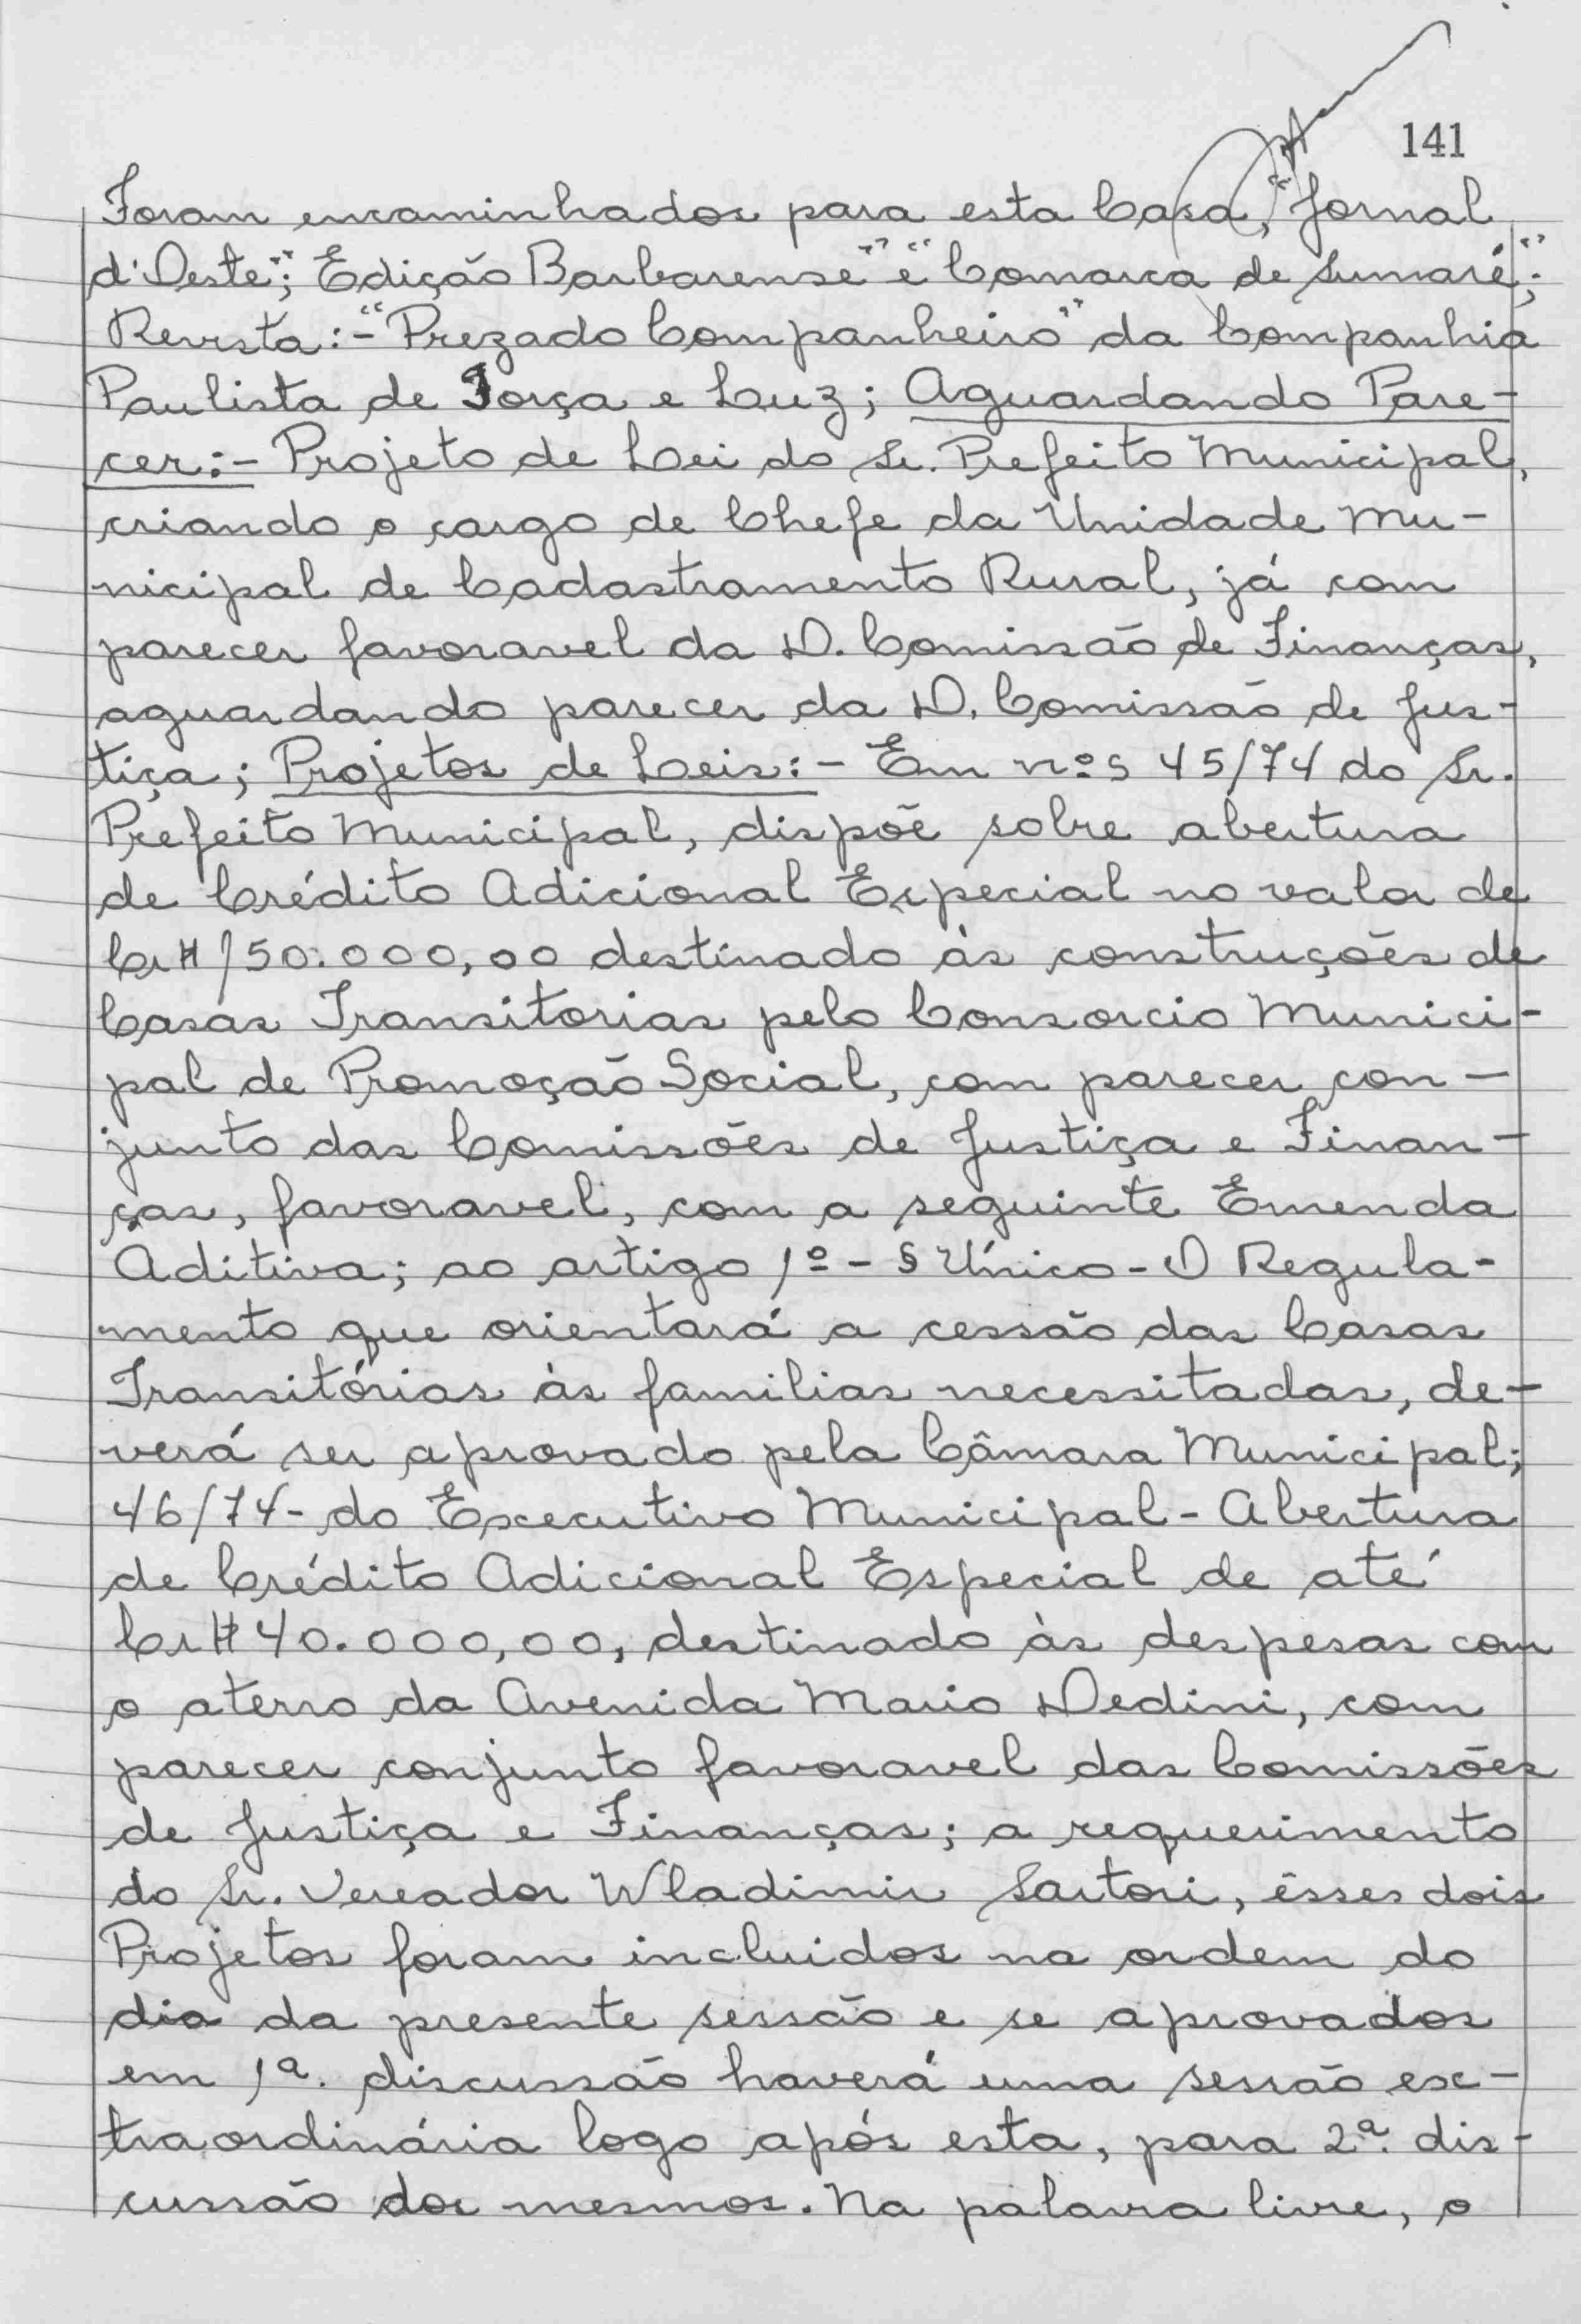 141
Foram encaminhados para esta Casa, "Jornal
d'Oeste"; Edição Barbarense" e "Comarca de Sumaré";
Revista:- "Prezado Companheiro" da Companhia
Paulista de Força e Luz; Aguardando Pare-
cer:- Projeto de Lei do Sr. Prefeito Municipal,
criando o cargo de Chefe da Unidade Mu-
nicipal de Cadastramento Rural, já com
parecer favoravel da D. Comissão de Finanças,
aguardando parecer da D. Comissão de Jus-
tiça; Projetos de Leis:- Em nºs 45/74 do Sr.
Prefeito Municipal, dispõe sobre abertura
de Crédito Adicional Especial no valor de
Cr$ 150.000,00 destinado às construções de
Casas Transitorias pelo Consorcio Munici-
pal de Promoção Social, com parecer con-
junto das Comissões de Justiça e Finan-
ças, favoravel, com a seguinte Emenda
Aditiva; ao artigo 1º - § Único - O Regula-
mento que orientará a cessão das Casas
Transitórias às familias necessitadas, de-
verá ser aprovado pela Câmara Municipal;
46/74 - do Executivo Municipal - Abertura
de Crédito Adicional Especial de até
Cr$ 40.000,00, destinado às despesas com
o aterro da Avenida Mario Dedini, com
parecer conjunto favoravel das Comissões
de Justiça e Finanças; a requerimento
do Sr. Vereador Wladimir Sartori, êsses dois
Projetos foram incluidos na ordem do
dia da presente sessão e se aprovados
em 1ª. discussão haverá uma sessão ex-
traordinária logo após esta, para 2ª. dis-
cussão dos mesmos. Na palavra livre, o